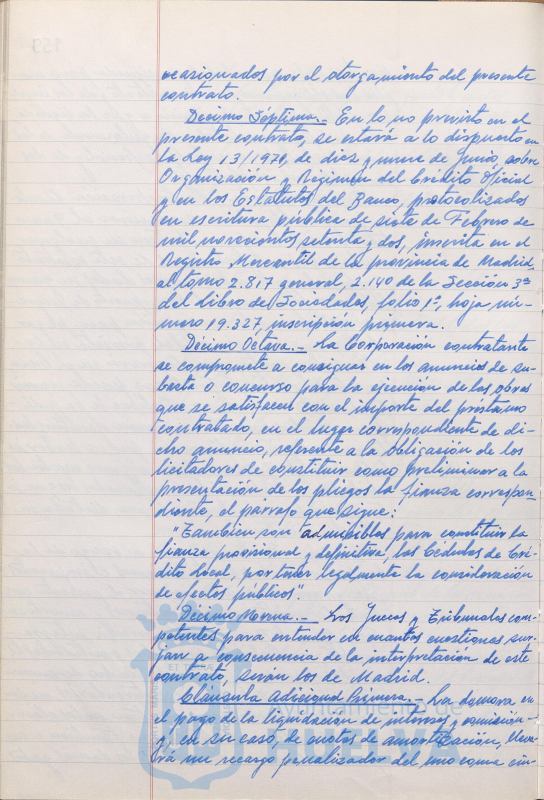 ocasionados por el otorgamiento del presente
contrato.
Décimo Séptima.- En lo no previsto en el
presente contrato, se estará a lo dispuesto en
la Ley 13/1971, de diez y nueve de Junio, sobre
Organización y Régimen del Crédito Oficial
y en los Estatutos del Banco, protocolizados
en escritura pública de siete de Febrero de
mil novecientos setenta y dos, inscrita en el
Registro Mercantil de la provincia de Madrid,
al tomo 2.817 general, 2.140 de la Sección 3ª
del Libro de Sociedades, folio 1º, hoja nú-
mero 19.327, inscripción primera.
Décimo Octava.- La Corporación contratante
se compromete a consignar en los anuncios de su-
basta o concurso para la ejecución de las obras
que se satisfacen con el importe del préstamo
contratado, en el lugar correspondiente de di-
cho anuncio, referente a la obligación de los
licitadores de constituir como preliminar a la
presentación de los pliegos la fianza correspon-
diente, el párrafo que sigue:
"También son admisibles para constituir la
fianza provisional y definitiva, las Cédulas de Cré-
dito Local, por tener legalmente la consideración
de efectos públicos".
Décimo Novena.- Los Jueces y Tribunales com-
petentes para entender en cuantas cuestiones sur-
jan a consecuencia de la interpretación de este
contrato, serán los de Madrid.
Cláusula Adicional Primera.- La demora en
el pago de la liquidación de intereses y comisión
y, en su caso, de cuotas de amortización, lleva-
rá un recargo penalizador del uno coma cin-
Ayuntamiento de
HUELVA